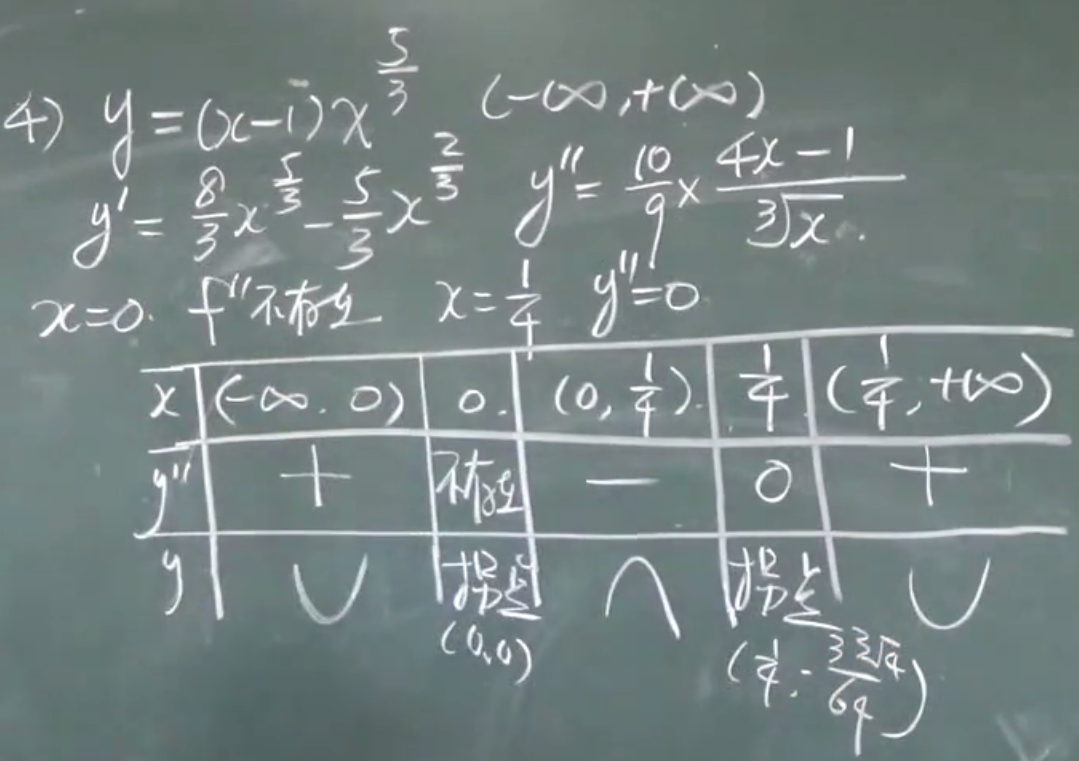 4) y = (x-1) x^{5/3} (-∞, +∞)
y' = 8/3 x^{5/3} - 5/3 x^{2/3} y'' = 10/9 × (4x-1)/∛x.
x=0. f'' 不存在 x=1/4 y''=0
x (-∞. 0) 0. (0, 1/4). 1/4 (1/4, +∞)
y'' + 不存在 - 0 +
y ∪ 拐点 ∩ 拐点 ∪
(0,0) (1/4, -3∛4/64)